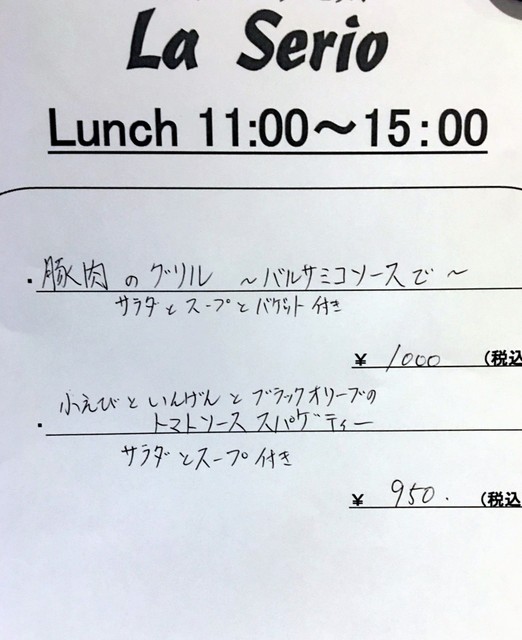 La Serio
Lunch 11:00～15:00
・豚肉のグリル ～バルサミコソースで～
サラダとスープとバゲット付き
¥ 1000 (税込
小えびといんげんとブラックオリーブの
・トマトソース スパゲティー
サラダとスープ付き
¥ 950. (税込